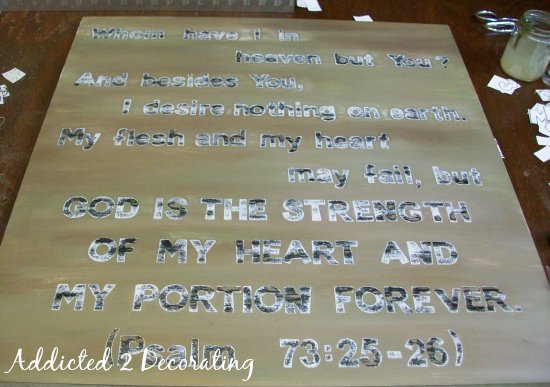 Whom have I in
heaven but You?
And besides You,
I desire nothing on earth.
My flesh and my heart
may fail, but
GOD IS THE STRENGTH
OF MY HEART AND
MY PORTION FOREVER.
(Psalm 73:25-26)
Addicted 2 Decorating